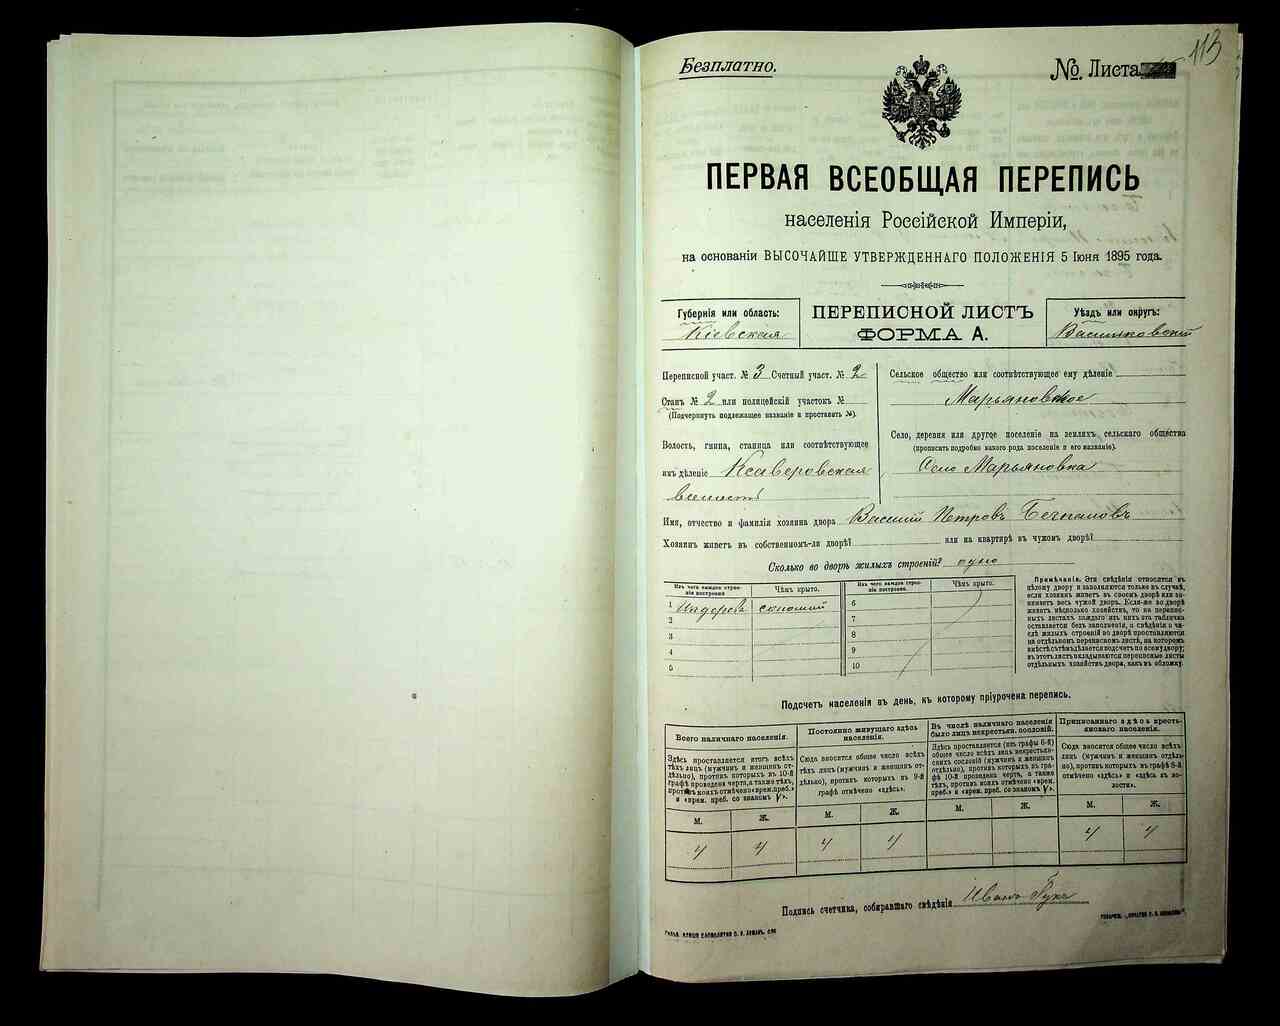 Безплатно.
№ Листа
113
ПЕРВАЯ ВСЕОБЩАЯ ПЕРЕПИСЬ
населенія Россійской Имперіи,
на основаніи ВЫСОЧАЙШЕ УТВЕРЖДЕННАГО ПОЛОЖЕНІЯ 5 Іюня 1895 года.
Губернія или область:
Кіевская
ПЕРЕПИСНОЙ ЛИСТЪ
ФОРМА А.
Уѣздъ или округъ:
Васильковскій
Переписной участ. № 3 Счетный участ. № 2
Станъ № 2 или полицейскій участокъ №
(Подчеркнуть подлежащее названіе и проставить №).
Волость, гмина, станица или соотвѣтствующее
имъ дѣленіе Ксаверовская
волость
Сельское общество или соотвѣтствующее ему дѣленіе
Марьяновское
Село, деревня или другое поселеніе на земляхъ сельскаго общества
(прописать подробно какого рода поселеніе и его названіе).
Село Марьяновка
Имя, отчество и фамилія хозяина двора Василій Петровъ
Хозяинъ живетъ въ собственномъ-ли дворѣ? или на квартирѣ въ чужомъ дворѣ?
Сколько во дворѣ жилыхъ строеній? одно
Изъ чего каждое строе-
ніе построено
Чѣмъ крыто.
Изъ чего каждое строе-
ніе построено.
Чѣмъ крыто.
1 Изъ дерева соломой
2
3
4
5
6
7
8
9
10
Примѣчаніе. Эти свѣдѣнія относятся къ
цѣлому двору и заполняются только въ случаѣ,
если хозяинъ живетъ въ своемъ дворѣ или за-
нимаетъ весь чужой дворъ. Если-же во дворѣ
живетъ нѣсколько хозяйствъ, то на перепис-
ныхъ листахъ каждаго изъ нихъ эта табличка
оставляется безъ заполненія, а свѣдѣнія о чи-
слѣ жилыхъ строеній во дворѣ проставляются
на отдѣльномъ переписномъ листѣ, на которомъ
вмѣстѣ съ тѣмъ дѣлается подсчетъ по всему двору;
въ этотъ листъ вкладываются переписные листы
отдѣльныхъ хозяйствъ двора, какъ въ обложку.
Подсчетъ населенія въ день, къ которому пріурочена перепись.
Всего наличнаго населенія.
Здѣсь проставляется итогъ всѣхъ
тѣхъ лицъ (мужчинъ и женщинъ от-
дѣльно), противъ которыхъ въ 10-й
графѣ проведена черта, а также тѣхъ,
противъ коихъ отмѣчено «врем. преб.»
и «врем. преб. со знакомъ V».
Постоянно живущаго здѣсь
населенія.
Сюда вносится общее число всѣхъ
тѣхъ лицъ (мужчинъ и женщинъ от-
дѣльно), противъ которыхъ въ 9-й
графѣ отмѣчено «здѣсь».
Въ числѣ наличнаго населенія
было лицъ некрестьян. сословій.
Здѣсь проставляется (изъ графы 6-й)
общее число всѣхъ лицъ некрестьян-
скихъ сословій (мужчинъ и женщинъ
отдѣльно), противъ которыхъ въ гра-
фѣ 10-й проведена черта, а также
тѣхъ, противъ коихъ отмѣчено «врем.
преб.» и «врем. преб. со знакомъ V».
Приписаннаго здѣсь кресть-
янскаго населенія.
Сюда вносится общее число всѣхъ
лицъ (мужчинъ и женщинъ отдѣль-
но), противъ которыхъ въ графѣ 8-й
отмѣчено «здѣсь» и «здѣсь въ во-
лости».
М. Ж. М. Ж. М. Ж. М. Ж.
4 4 4 4 4 4
Подпись счетчика, собиравшаго свѣдѣнія Иванъ